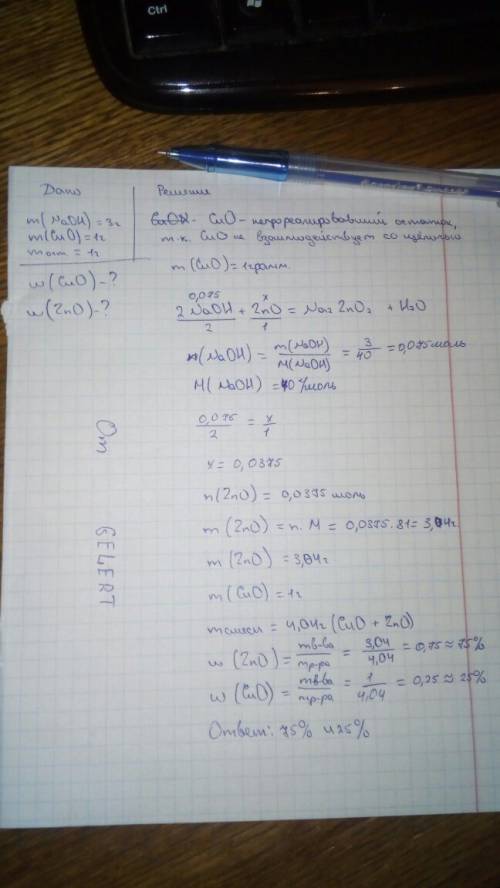 Ctrl
Дано
Решение
m(NaOH)=3г
m(CuO)=1г
mост = 1г
w(CuO)-?
w(ZnO)-?
CuO - непрореагировавший остаток,
т.к. CuO не взаимодействует со щёлочью
m(CuO)=1грамм.
0,075 x
2NaOH + ZnO = Na2ZnO2 + H2O
2 1
n(NaOH) = m(NaOH)/M(NaOH) = 3/40 = 0,075моль
M(NaOH) = 40 г/моль
0,075/2 = x/1
x = 0,0375
n(ZnO) = 0,0375 моль
m(ZnO) = n·M = 0,0375·81 = 3,04г
m(ZnO) = 3,04г
m(CuO) = 1г
mсмеси = 4,04г (CuO + ZnO)
w(ZnO) = mв-ва/mр-ра = 3,04/4,04 = 0,75 ≈ 75%
w(CuO) = mв-ва/mр-ра = 1/4,04 = 0,25 ≈ 25%
Ответ: 75% и 25%
От
GELERT